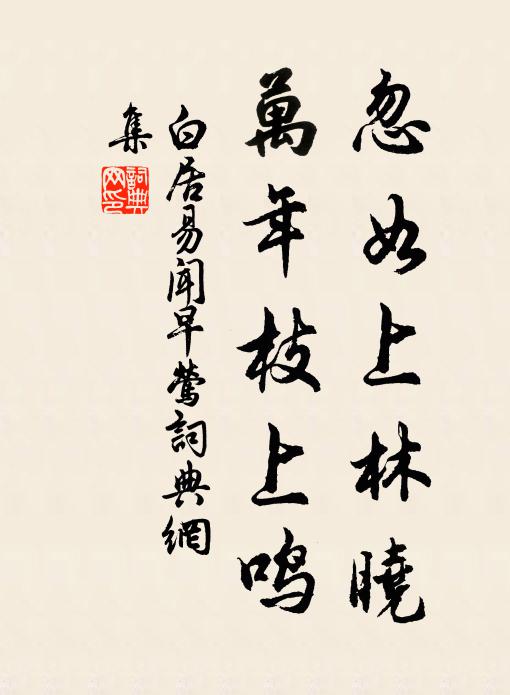 忽如上林曉
萬年枝上鳴
白居易聞早鶯詞典網
集
詞典
网印